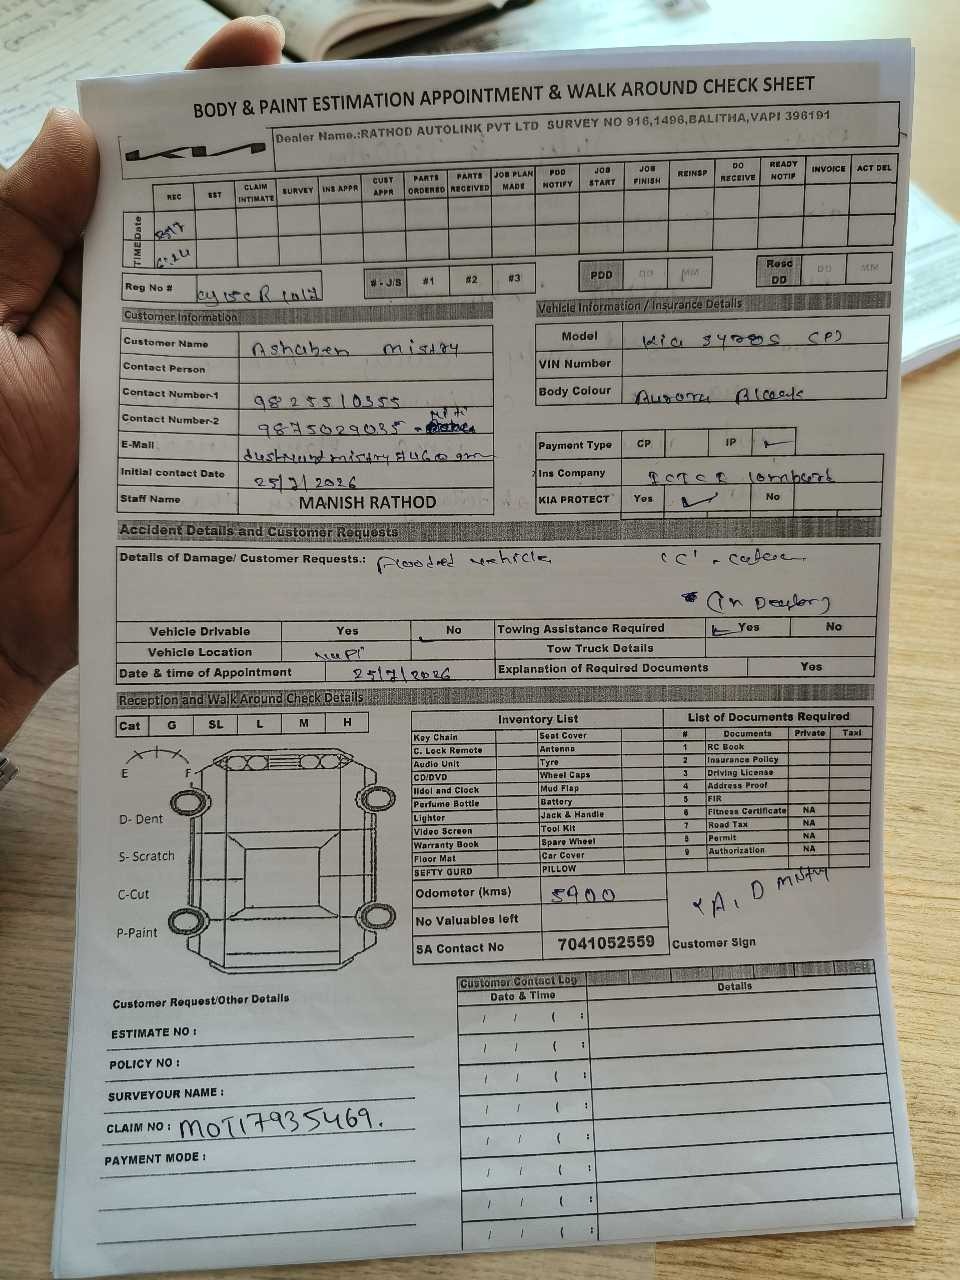 BODY & PAINT ESTIMATION APPOINTMENT & WALK AROUND CHECK SHEET
KIA
Dealer Name.:RATHOD AUTOLINK PVT LTD SURVEY NO 916,1496,BALITHA,VAPI 396191
REC EST CLAIM INTIMATE SURVEY INS APPR CUST APPR PARTS ORDERED PARTS RECEIVED JOB PLAN MADE PDD NOTIFY JOB START JOB FINISH REINSP DO RECEIVE READY NOTIF INVOICE ACT DEL
Date
TIME
Reg No #
# - J/S #1 #2 #3 PDD DD MM Resc DD DD MM
Customer Information
Vehicle Information / Insurance Details
Customer Name Ashaben mistry
Contact Person
Contact Number-1 9825510355
Contact Number-2 9875029035
E-Mail
Initial contact Date 25/7/2026
Staff Name MANISH RATHOD
Model Kia syros (P)
VIN Number
Body Colour Aurora Black
Payment Type CP IP ✓
Ins Company ICICI lombard
KIA PROTECT Yes ✓ No
Accident Details and Customer Requests
Details of Damage/ Customer Requests.: Flooded vehicle
Vehicle Drivable Yes No Towing Assistance Required Yes No
Vehicle Location Vapi Tow Truck Details
Date & time of Appointment 25/7/2026 Explanation of Required Documents Yes
Reception and Walk Around Check Details
Cat G SL L M H
E F
D- Dent
S- Scratch
C-Cut
P-Paint
Inventory List
Key Chain Seat Cover
C. Lock Remote Antenna
Audio Unit Tyre
CD/DVD Wheel Caps
IIdol and Clock Mud Flap
Perfume Bottle Battery
Lighter Jack & Handle
Video Screen Tool Kit
Warranty Book Spare Wheel
Floor Mat Car Cover
SEFTY GURD PILLOW
List of Documents Required
# Documents Private Taxi
1 RC Book
2 Insurance Policy
3 Driving License
4 Address Proof
5 FIR
6 Fitness Certificate NA
7 Road Tax NA
8 Permit NA
9 Authorization NA
Odometor (kms) 5900
No Valuables left
SA Contact No 7041052559
A. D mistry
Customer Sign
Customer Request/Other Details
ESTIMATE NO :
POLICY NO :
SURVEYOUR NAME :
CLAIM NO : MOT17935469.
PAYMENT MODE :
Customer Contact Log
Date & Time Details
/ / ( :
/ / ( :
/ / ( :
/ / ( :
/ / ( :
/ / ( :
/ / ( :
/ / ( :